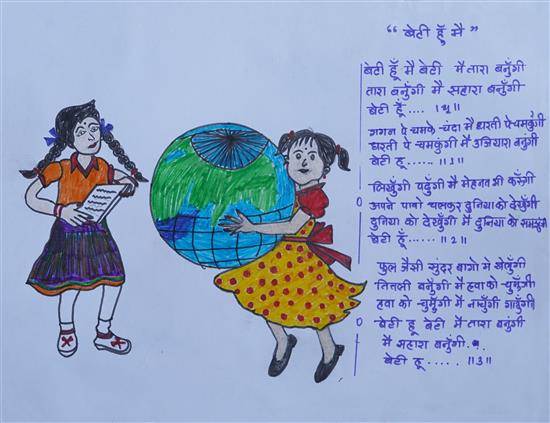 “ बेटी हूँ मै ”
बेटी हूँ मै बेटी मै तारा बनुँगी
तारा बनुंगी मै सहारा बनुंगी
बेटी हूँ....।धृ॥
गगन पे चमके चंदा मै धरती पे चमकुंगी
धरती पे चमकुंगी मै उजियारा बनुंगी
बेटी हू......॥1॥
लिखुँगी पढुँगी मै मेहनत भी करुँगी
अपने पावो चलकर दुनिया को देखुँगी
दुनिया को देखुँगी मै दुनिया को समझुंगी
बेटी हूँ......॥2॥
फुल जैसी सुंदर बागो मे खेलुँगी
तितली बनुँगी मै हवा को चुमुँगी
हवा को चुमुँगी मै नाचुँगी गाउँगी
बेटी हू बेटी मै तारा बनुंगी
मै सहारा बनुंगी.
बेटी हू.....॥3॥